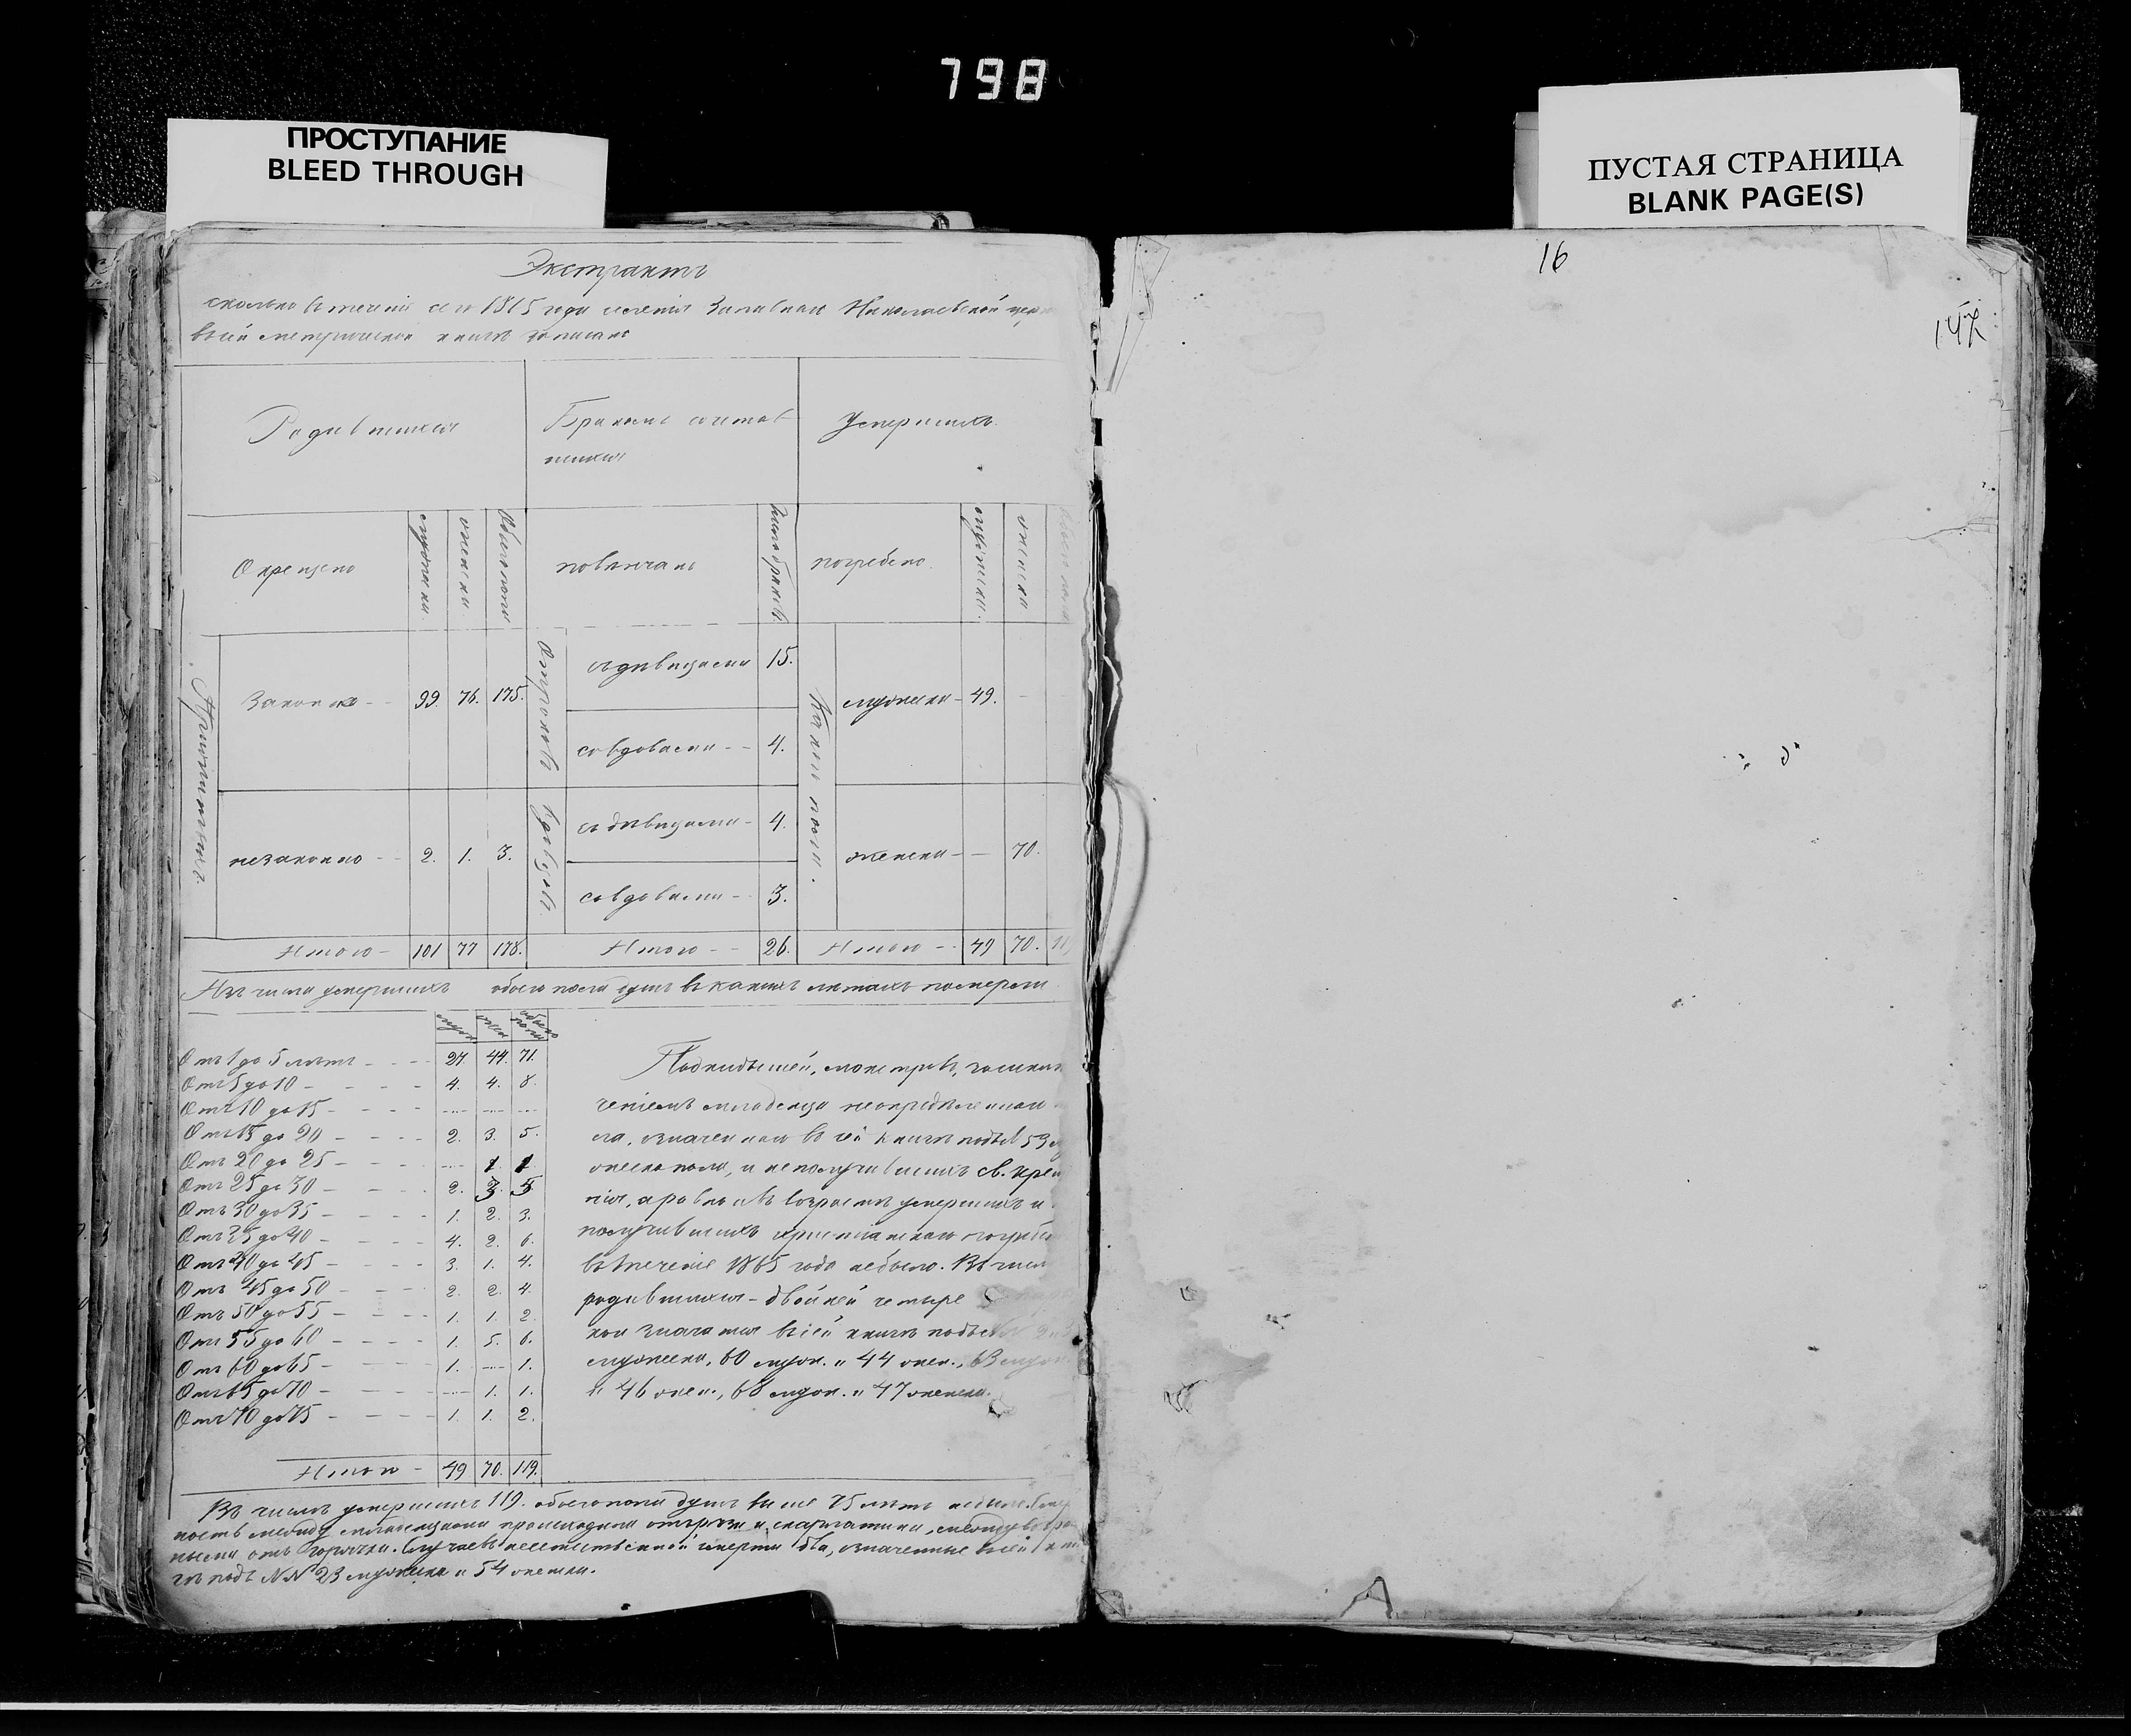 798
ПРОСТУПАНИЕ
BLEED THROUGH
ПУСТАЯ СТРАНИЦА
BLANK PAGE(S)
16
147
Экстрактъ
сколько въ теченіе сего 1865 года селенія Николаевской
въ сей метрической книгѣ записано
Родившихся
Бракомъ сочетав
шихся
Умершихъ.
Окрещено
мужески.
женски.
Обоего пола
повѣнчано
число браковъ.
погребено.
мужески.
женски
Законно - - 99. 76. 175.
незаконно - - 2. 1. 3.
Отроковъ
съ дѣвицами 15.
со вдовами - - 4.
Вдовцовъ.
съ дѣвицами - 4.
со вдовами - - 3.
мужески - 49. - -
женски - - 70.
Итого - 101 77 178.
Итого - - 26.
Итого - - 49 70.
Изъ числа умершихъ обоего пола душъ въ какихъ лѣтахъ померли
муж жен обоего пола
Отъ 1 до 5 лѣтъ - - - - 27. 44. 71.
Отъ 5 до 10 - - - - 4. 4. 8.
Отъ 10 до 15 - - - - ... ... ...
Отъ 15 до 20 - - - - 2. 3. 5.
Отъ 20 до 25 - - - - ... 1. 1
Отъ 25 до 30 - - - - 2. 3. 5.
Отъ 30 до 35 - - - - 1. 2. 3.
Отъ 35 до 40 - - - - 4. 2. 6.
Отъ 40 до 45 - - - - 3. 1. 4.
Отъ 45 до 50 - - - - 2. 2. 4.
Отъ 50 до 55 - - - - 1. 1. 2
Отъ 55 до 60 - - - - 1. 5. 6.
Отъ 60 до 65 - - - - 1. ... 1.
Отъ 65 до 70 - - - - ... 1. 1.
Отъ 70 до 75 - - - - 1. 1. 2.
Итого - 49 70. 119.
Подкидышей, монстровъ, за исклю
ченіемъ младенца неопредѣленнаго
означеннаго въ сей книгѣ подъ № 53
женска пола, и не получившихъ св. крещ
нія, а равно въ возрастѣ умершихъ и
получившихъ христіанскаго погребе
въ теченіе 1865 года не было. Въ числ
родившихся - двойней четыре
кои значатся въ сей книгѣ подъ
мужеска, 60 муж. и 44 жен., 63 муж
и 46 жен., 68 муж. и 47 женски.
Въ числѣ умершихъ 119. обоего пола душъ выше 75 лѣтъ не было.
ность между младенцами происходила отъ и скарлатины, между
ными отъ горячки. Случаевъ неестественной смерти два, означенные въ сей
гѣ подъ NN 23 мужеска и 54 женски.
A